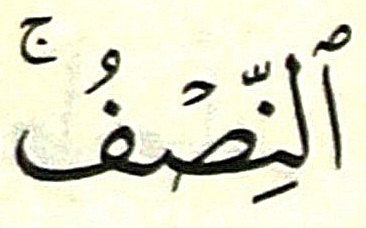 ٱلنِّصۡفُۚ